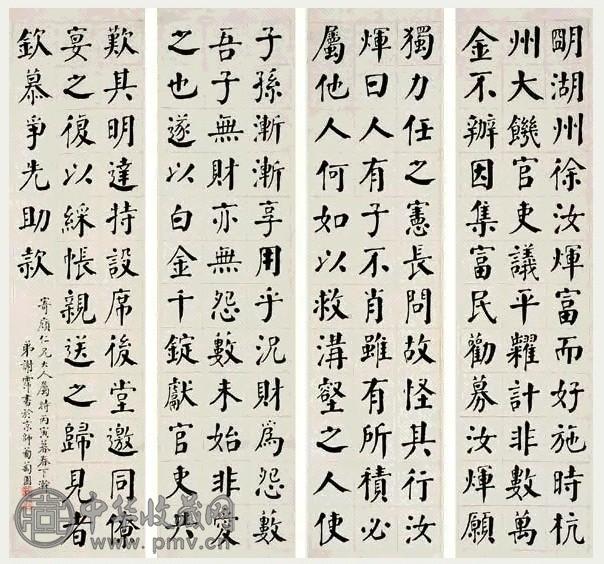 朙湖州徐汝煇富而好施時杭
州大饑官吏議平糶計非數萬
金不辦因集富民勸募汝煇願
獨力任之憲長問故怪其行汝
煇曰人有子不肖雖有所積必
屬他人何如以救溝壑之人使
子孫漸漸享用乎況財爲怨數
吾子無財亦無怨數未始非愛
之也遂以白金千錠獻官吏共
歎其明達持設席後堂邀同僚
宴之復以綵帳親送之歸見者
欽慕爭先助款
仁兄大人屬時丙寅暮春下澣
弟謝霈書於京師葡萄園
中华收藏网
www.pmv.cn